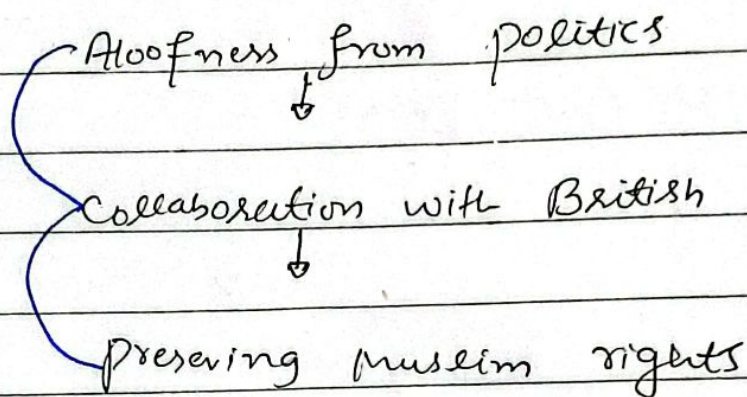 Aloofness from politics
↓
Collaboration with British
↓
Preserving Muslim rights